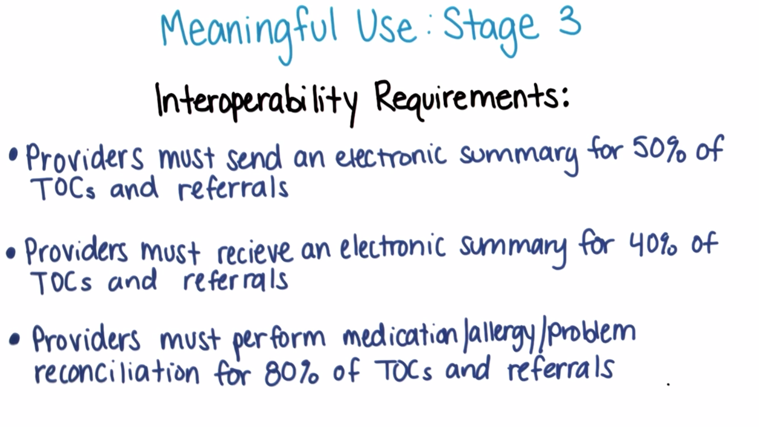 Meaningful Use: Stage 3
Interoperability Requirements:
• Providers must send an electronic summary for 50% of
TOCs and referrals
• Providers must recieve an electronic summary for 40% of
TOCs and referrals
• Providers must perform medication/allergy/problem
reconciliation for 80% of TOCs and referrals